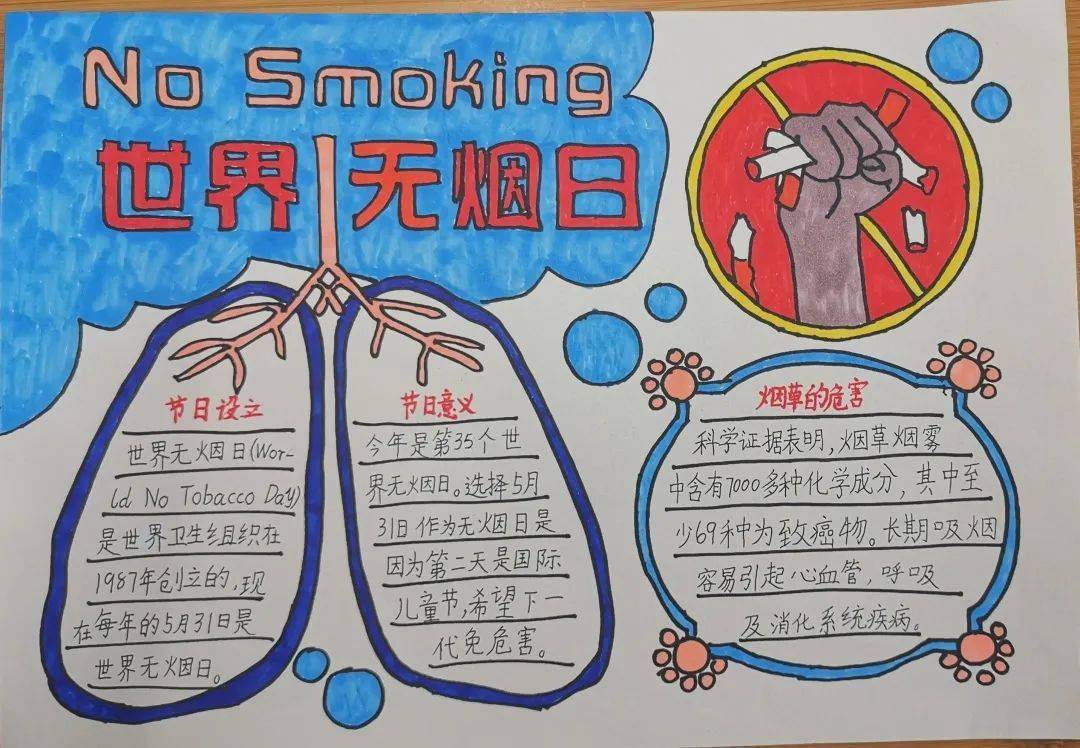 No Smoking
世界无烟日
节日设立
世界无烟日(Wor-
ld No Tobacco Day)
是世界卫生组织在
1987年创立的,现
在每年的5月31日是
世界无烟日。
节日意义
今年是第35个世
界无烟日。选择5月
31日作为无烟日是
因为第二天是国际
儿童节,希望下一
代免危害。
烟草的危害
科学证据表明,烟草烟雾
中含有7000多种化学成分,其中至
少69种为致癌物。长期吸烟
容易引起心血管,呼吸
及消化系统疾病。